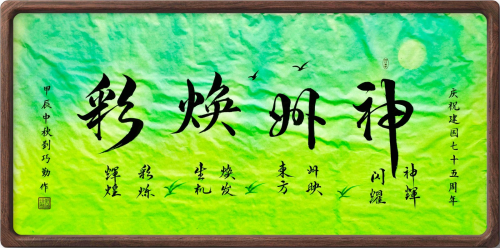 庆祝建国七十五周年
神州焕彩
神輝
闪耀
州映
東方
焕发
生机
彩烁
輝煌
甲辰中秋刘巧勤作